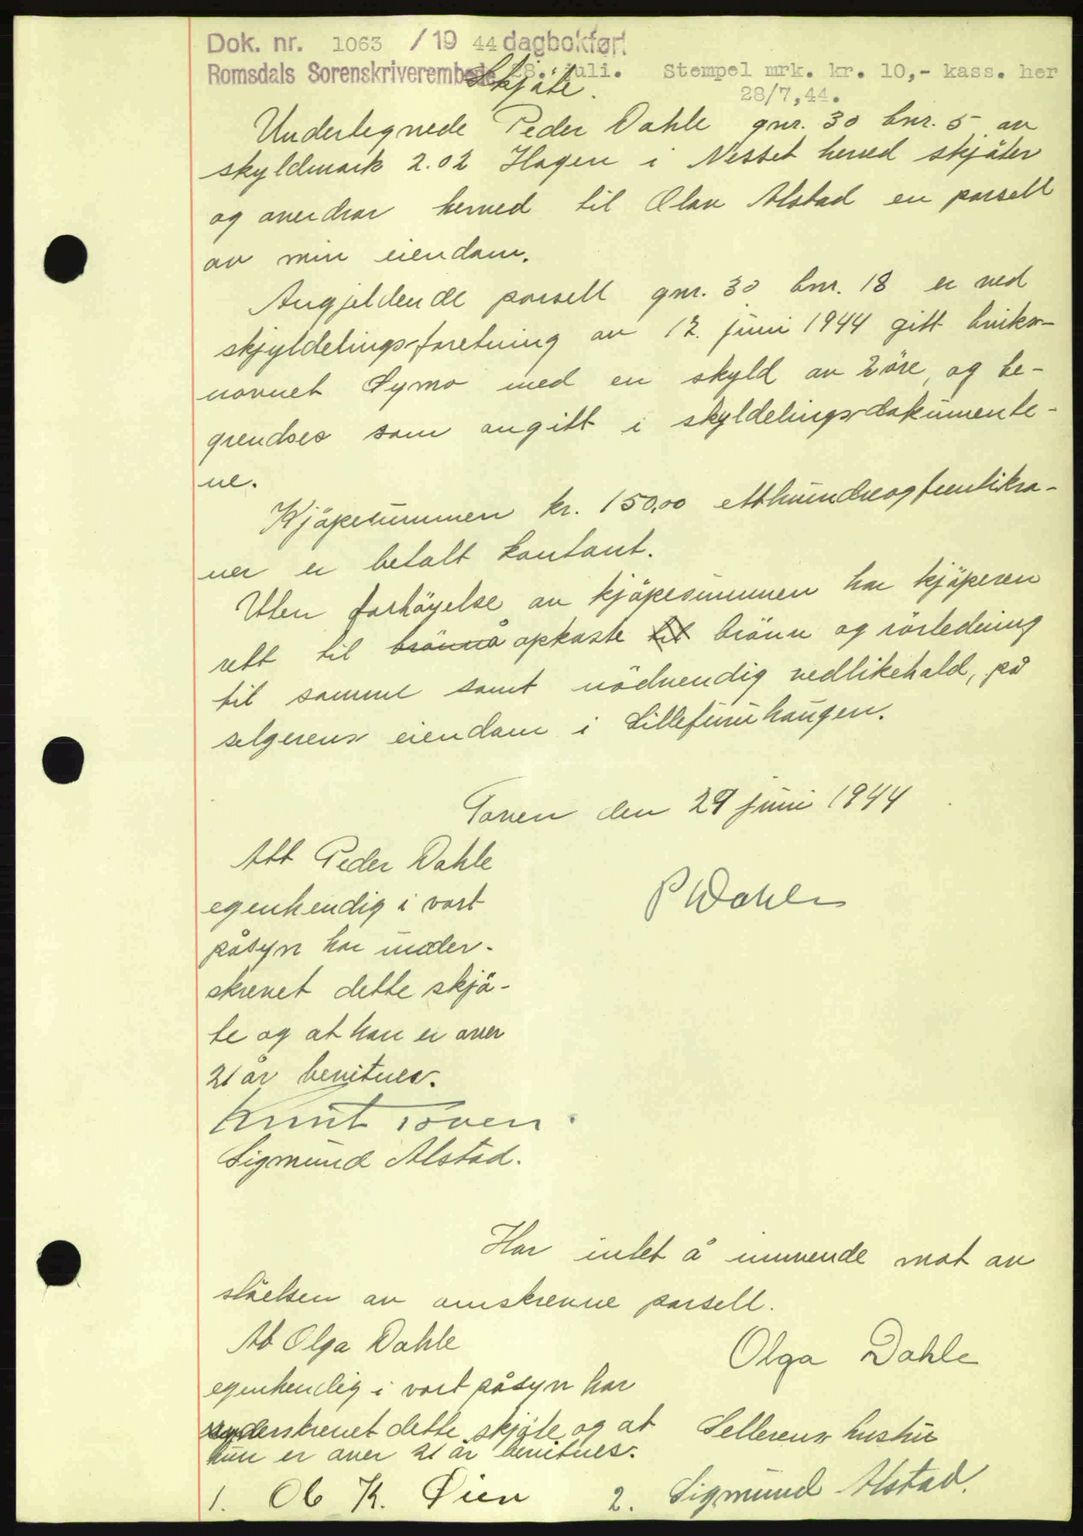 Dok. nr. 1063 /19 44 dagbokført
Romsdals Sorenskriverembede 28. juli. Stempel mrk. kr. 10,- kass. her
28/7,44.
Skjöte.
Undertegnede Peder Dahle gnr. 30 bnr. 5 av
skyldmark 2.02 Hagen i Nesset herred skjöter
og overdrar herved til Olav Alstad en parsell
av min eiendom.
Angjeldende parsell gnr. 30 bnr. 18 er ved
skjyldelingsforretning av 12. juni 1944 gitt bruks-
navnet Symo med en skyld av 2 öre, og be-
grendses som angitt i skyldelingsdokumente-
ne.
Kjöpesummen kr. 150,00 etthundreogfemtikro-
ner er betalt kontant.
Uten forhöyelse av kjöpesummen har kjöperen
rett til brönn å opkaste til brönn og rörledning
til samme samt nödvendig vedlikehold, på
selgerens eiendom i Lillefuruhaugen.
Toven den 29 juni 1944
Att Peder Dahle
egenhendig i vort
påsyn har under-
skrevet dette skjö-
te og at han er over
21 år bevitnes.
P Dahle
Knut Toven.
Sigmund Alstad.
Har intet å innvende mot av
ståelsen av omskrevne parsell.
At Olga Dahle
Olga Dahle
egenhendig i vort påsyn har
underskrevet dette skjöte og at
Sellerens hustru
hun er over 21 år bevitnes.
1. Ole K. Øien 2. Sigmund Alstad.